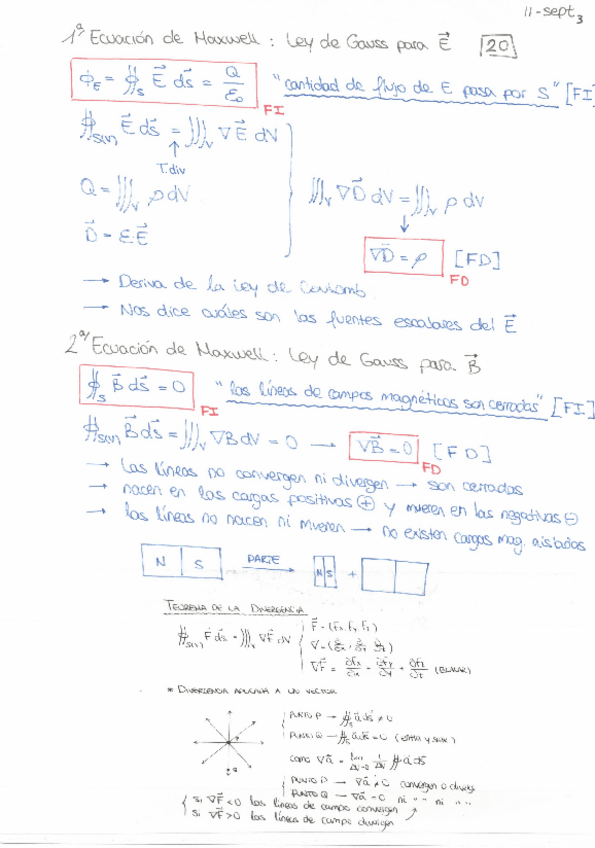 11-sept 3
1ª Ecuación de Maxwell : Ley de Gauss para E⃗ [20]
ϕ_E = ∯_S E⃗ ds⃗ = Q/ε₀ "cantidad de flujo de E pasa por S" [FI]
FI
∯_S(V) E⃗ ds⃗ = ∭_V ∇E⃗ dV
↑
T.div
Q = ∭_V ρ dV
∭_V ∇D⃗ dV = ∭_V ρ dV
↓
D⃗ = ε·E⃗
∇D⃗ = ρ [FD]
FD
→ Deriva de la Ley de Coulomb.
→ Nos dice cuáles son las fuentes escalares del E⃗
2ª Ecuación de Maxwell : Ley de Gauss para B⃗
∯_S B⃗ ds⃗ = 0 "las líneas de campos magnéticos son cerradas" [FI]
FI
∯_S(V) B⃗ ds⃗ = ∭_V ∇B dV = 0 → ∇B⃗ = 0 [FD]
FD
→ Las líneas no convergen ni divergen → son cerradas
→ nacen en las cargas positivas ⊕ y mueren en las negativas ⊖
→ las líneas no nacen ni mueren → no existen cargas mag. aisladas
N S PARTE → N S +
TEOREMA DE LA DIVERGENCIA
∯_S(V) F⃗ ds⃗ = ∭_V ∇F⃗ dV
F⃗ = (Fx, Fy, Fz)
* DIVERGENCIA APLICADA A UN VECTOR
PUNTO P → ∯_S a⃗ ds⃗ ≠ 0
PUNTO Q → ∯_S a⃗ ds⃗ = 0 (entra y sale)
como ∇a⃗ = lim ΔV→0 1/ΔV ∯ a⃗ ds⃗
PUNTO P → ∇a⃗ ≠ 0 convergen o
PUNTO Q → ∇a⃗ = 0 ni " " ni " "
Si ∇F⃗ < 0 las líneas de campo convergen
Si ∇F⃗ > 0 las línea de campo divergen